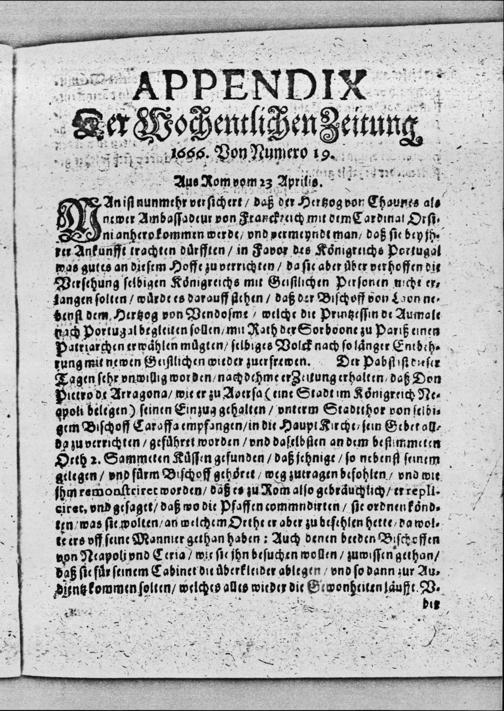 APPENDIX
Der Wochentlichen Zeitung
1666. Von Numero 19.
Aus Rom vom 23 Aprilis.
MAn ist nunmehr versichert / daß der Hertzog von Chaunes als
newer Ambassadeur von Franckreich mit dem Cardinal Orsi-
ni anhero kommen werde / und vermeyndt man / daß sie bey ih-
rer Ankunfft trachten dürfften / in Favor des Königreichs Portugal
was gutes an diesem Hoffe zu verrichten / da sie aber über verhoffen die
Versehung selbigen Königreichs mit Geistlichen Personen nicht er-
langen solten / würde es darauff stehen / daß der Bischoff von Laon ne-
benst dem Hertzog von Vendosme / welche die Printzessin de Aumale
nach Portugal begleiten sollen / mit Rath der Sorboone zu Pariß einen
Patriarchen erwählen mügten / selbiges Volck nach so länger Entbeh-
rung mit newen Geistlichen wieder zu erfrewen. Der Pabst ist dieser
Tagen sehr vnwillig worden / nach dehme er Zeitung erhalten / daß Don
Pietro de Arragona / wie er zu Aversa (eine Stadt im Königreich Ne-
apoli belegen) seinen Einzug gehalten / vnterm Stadtthor von selbi-
gem Bischoff Caraffa empfangen / in die Haupt Kirche / sein Gebet all-
da zu verrichten / geführet worden / vnd daselbsten an dem bestimmeten
Orth 2. Sammeten Küssen gefunden / daß jehnige / so nebenst seinem
gelegen / vnd fürm Bischoff gehöret / weg zutragen befohlen / vnd wie
ihm remonstriret worden / daß es zu Rom also gebräuchlich / er repli-
ciret, vnd gesaget / daß wo die Pfaffen commndirten / sie ordnen könd-
ten / was sie wolten / an welchem Orthe er aber zu befehlen hette / da wol-
te ers vff seine Mannier gethan haben : Auch denen beeden Bischoffen
von Neapoli vnd Ceria / wie sie jhn besuchen wollen / zuwissen gethan /
daß sie für seinem Cabinet die überkleider ablegen / vnd so dann zur Au-
dientz kommen solten / welches alles wieder die Gewonheiten läufft. V-
ber